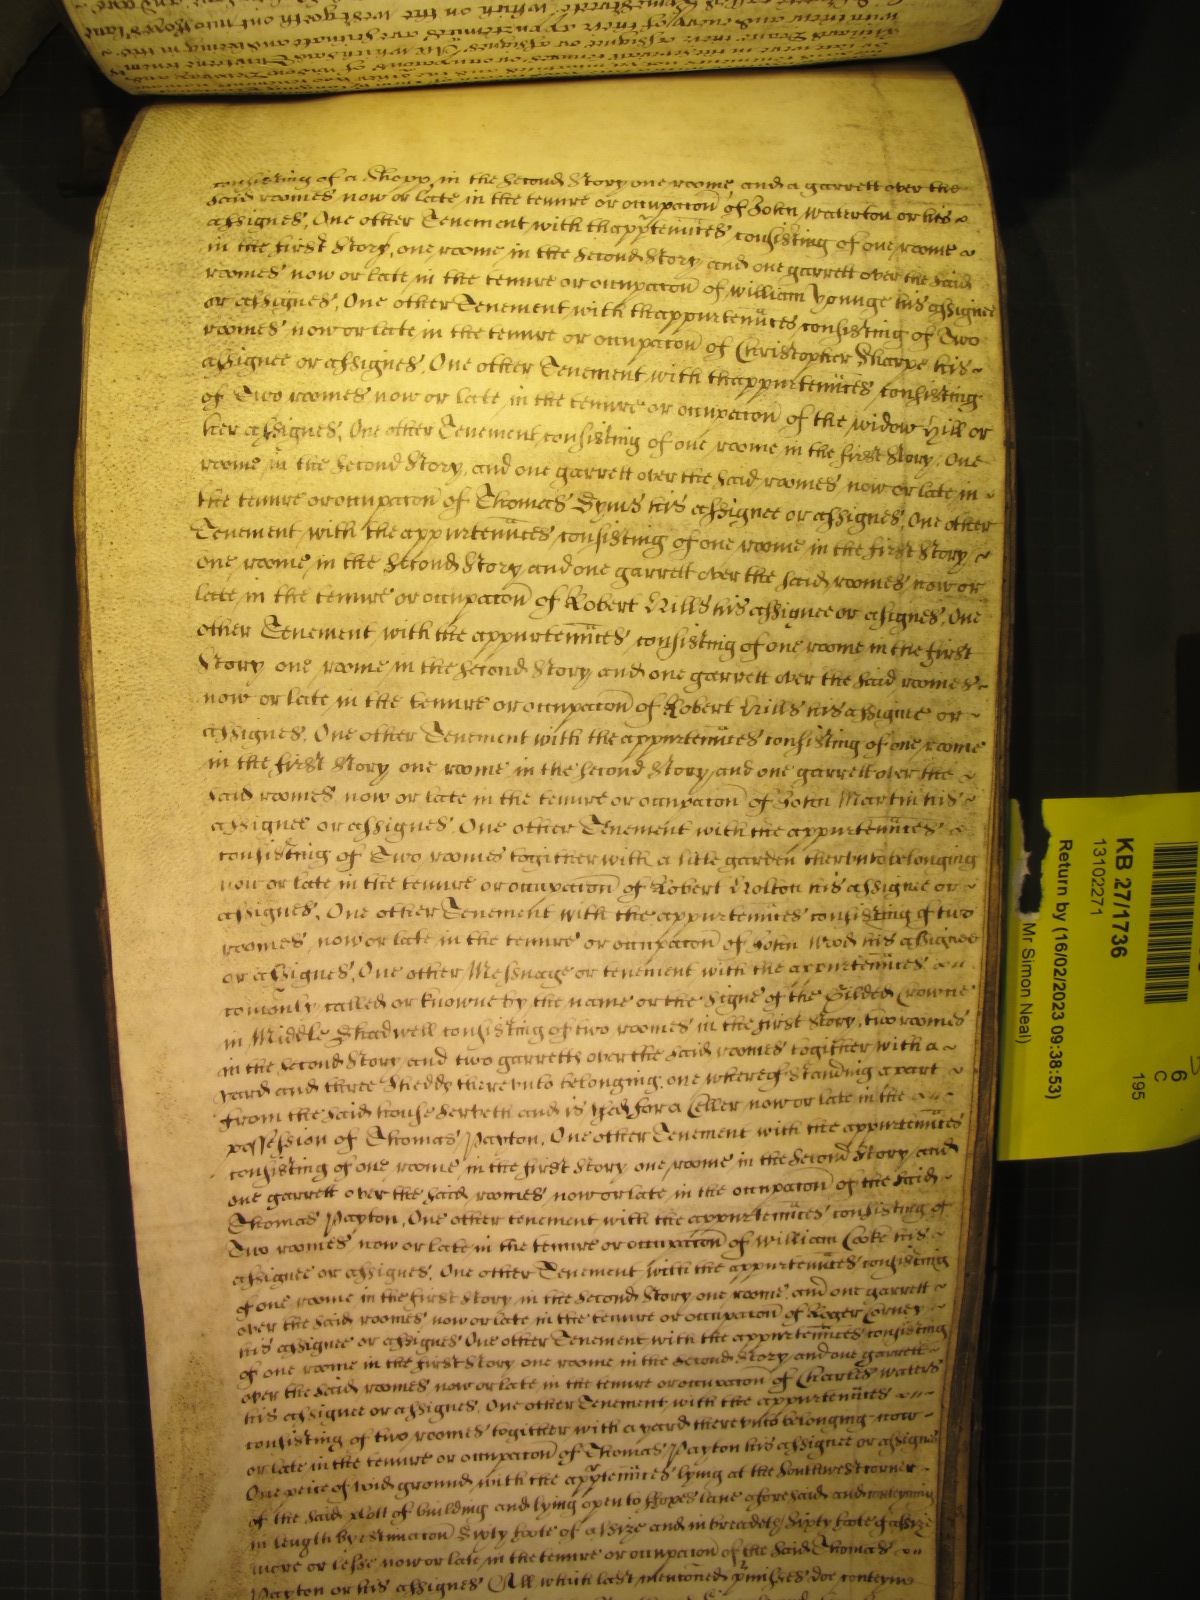 consisting of a Shopp, in the Second Story one roome, and a garrett over the
said roomes now or late in the tenure or occupacon of John Waterton or his
assignes, One other Tenement with thapptennces consisting of one roome
in the first Story, one roome in the Second Story and one garrett over the said
roomes now or late in the tenure or occupacon of William Younge his assignee
or assignes, One other Tenement with thappurtennces consisting of Two
roomes now or late in the tenure or occupacon of Christopher Sharpe his
assignee or assignes, One other Tenement with thappurtennces consisting
of Two roomes now or late in the tenure or occupacon of the widow Hill or
her assignes, One other Tenement consisting of one roome in the first Story, One
roome in the Second Story, and one garrett over the said roomes now or late in
the tenure or occupacon of Thomas Syms his assignee or assignes, One other
Tenement with the appurtennces consisting of one roome in the first Story
one roome in the Second Story and one garrett over the said roomes now or
late in the tenure or occupacon of Robert his assignee or assignes, One
other Tenement with the appurtennces consisting of one roome in the first
Story one roome in the Second Story and one garrett over the said roomes
now or late in the tenure or occupacon of Robert his assignee or
assignes, One other Tenement with the appurtennces consisting of one roome
in the first Story one roome in the Second Story and one garrett over the
said roomes now or late in the tenure or occupacon of John Martin his
assignee or assignes, One other Tenement with the appurtennces
consisting of Two roomes togither with a litle garden therunto belonging
now or late in the tenure or occupacon of Robert his assignee or
assignes, One other Tenement with the appurtennces consisting of two
roomes now or late in the tenure or occupacon of John Wod his assignee
or assignes, One other Messuage or tenement with the appurtennces
comonly called or knowne by the name or the Signe of the Gilded Crowne
in Middle Shadwell consisting of two roomes in the first Story, two roomes
in the Second Story and two garretts over the said roomes togither with a
yard and three Shedds there unto belonging, one whereof standing apart
from the said house serveth and is used for a Celler now or late in the
possession of Thomas Payton, One other Tenement with the appurtennces
consisting of one roome in the first Story one roome in the Second Story and
one garrett over the said roomes now or late in the occupacon of the said
Thomas Payton, One other tenement with the appurtennces consisting of
Two roomes now or late in the tenure or occupacon of William Cooke his
assignee or assignes, One other Tenement with the appurtennces consisting
of one roome in the first Story in the Second Story one roome and one garrett
over the said roomes now or late in the tenure or occupacon of Roger Corney
his assignee or assignes One other Tenement with the appurtennces consisting
of one roome in the first Story one roome in the Second Story and one garrett
over the said roomes now or late in the tenure or occupacon of Charles Waters
his assignee or assignes, One other Tenement with the appurtennces
consisting of two roomes togither with a yard thereunto belonging now
or late in the tenure or occupacon of Thomas Payton his assignee or assignes
One peice of void ground with the apptennces lying at the Southwest corner
of the said plott of building and lying open to Foxes lane aforesaid and conteyning
in length by estimacon Sixty foote of assize and in breadeth Sixty foote of assize
more or lesse now or late in the tenure or occupacon of the said Thomas
Payton or his assignes All which last mentoned pmisses doe conteyne
KB 27/1736
13102271
Return by (16/02/2023 09:38:53)
Mr Simon Neal)
6
C
195